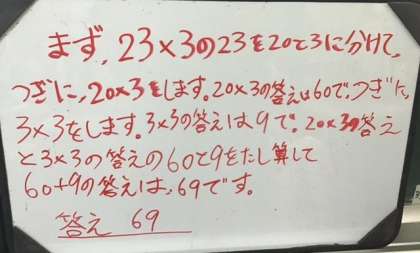 まず、23×3の23を20と3に分けて、
つぎに、20×3をします。20×3の答えは60で、つぎに、
3×3をします。3×3の答えは9で。20×3の答え
と3×3の答えの60と9をたし算して
60+9の答えは、69です。
答え 69